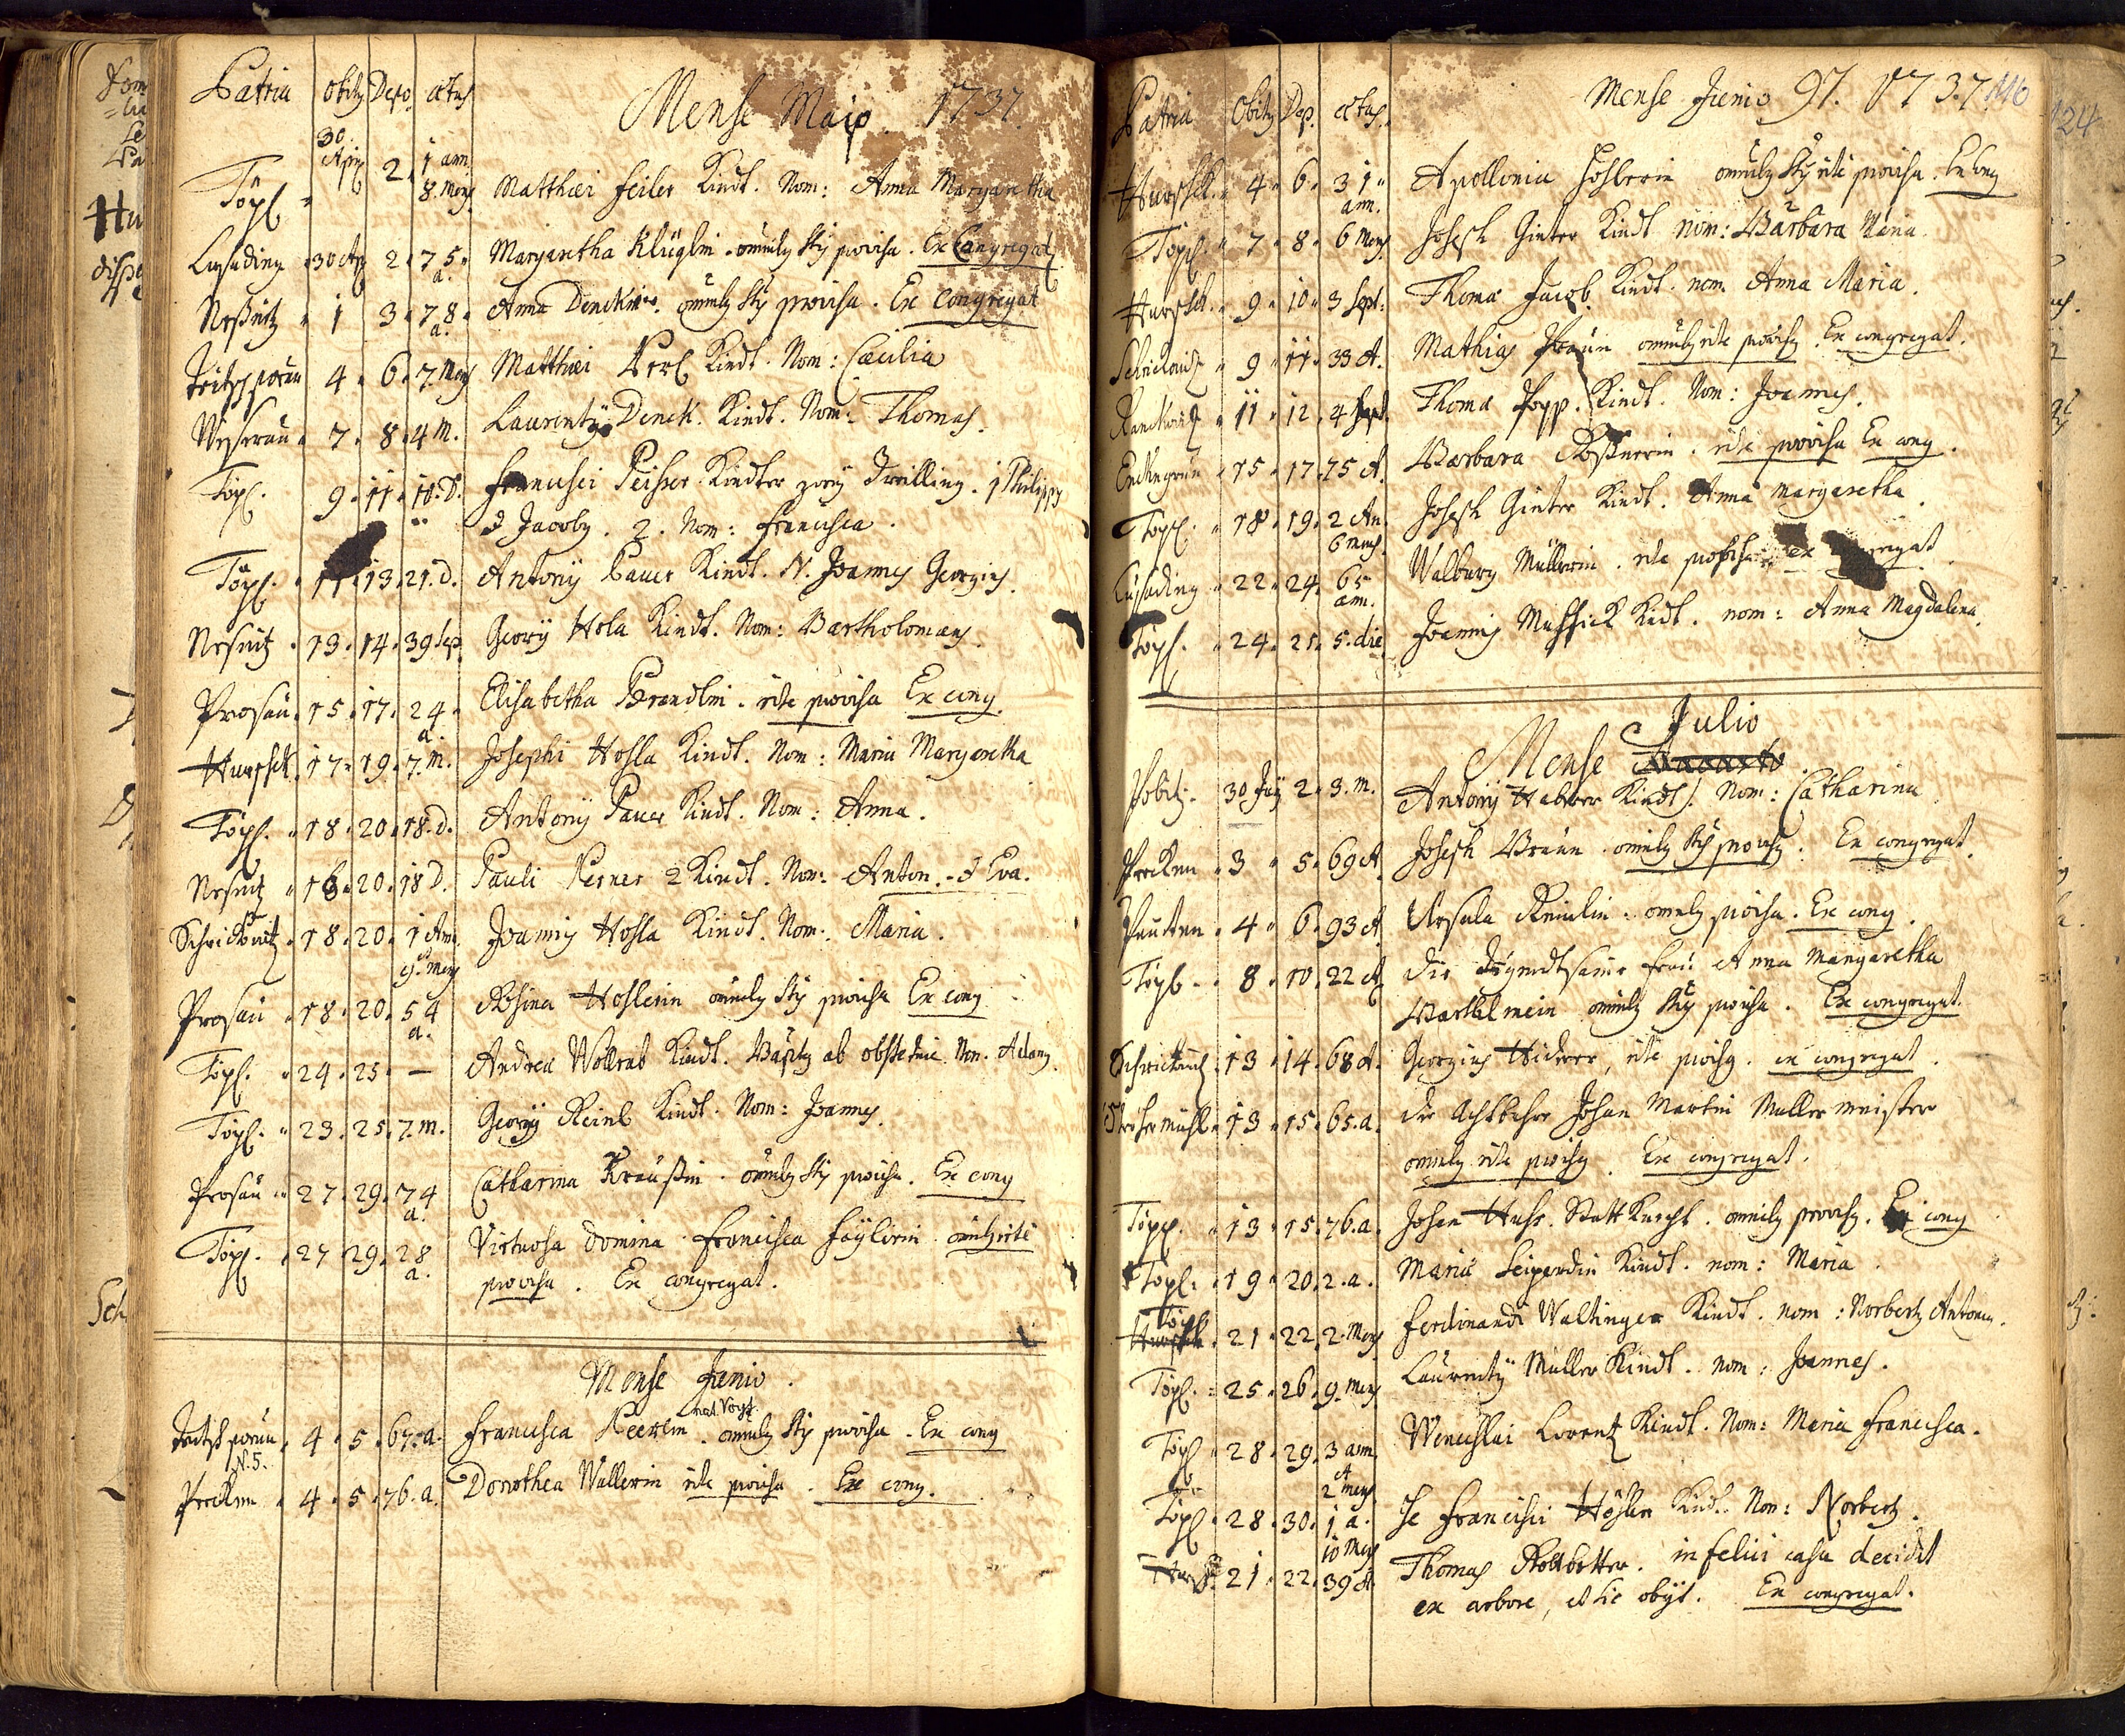 Patria Obitus Depo. ætas
Mense Majo. 1737.
Töpl. 30 Apr. 2. 1 ann. 8. mens. Matthiæi Feiler Kindt. Nom: Anna Margaretha
Lusading 30 Ap 2. 75. a. Margaretha Klüglin. omnibus Stis provisa. Ex Congregat.
Neßnitz 1 3. 78. a. Anna Denckin. omnibus Stis provisa. Ex Congregat
4. 6. 7. Mens Matthiæi Kerl Kindt. Nom: Cæcilia
Weserau. 7. 8. 4 M. Laurentÿ Denck. Kindt. Nom: Thomas.
Töpl. 9. 11. 10. D. Francisci Peißer Kindter zweÿ Zwilling. 1 Philippus
& Jacobus. 2. Nom: Francisca.
Töpl. 11. 13. 21. d. Antonÿ Pauer Kindt. N. Joannes Georgius.
Nesnitz. 13. 14. 39 Sep. Georÿ Hola Kindt. Nom: Bartholomæus.
Prosau. 15. 17. 24. a. Elisabetha Brandlin. rite provisa Ex cong.
Hurschk. 17. 19. 7. m. Josephi Hohla Kindt. Nom: Maria Margaretha
Töpl. 18. 20. 18. d. Antonÿ Pauer Kindt. Nom: Anna.
Nesnitz 18. 20. 18 D. Pauli Kerner 2 Kindt. Nom: Anton. & Eva.
Schrickowitz. 18. 20. 1 Ann. 9. mens Joannis Hohla Kindt. Nom: Maria.
Prosau 18. 20. 54 a. Rosina Hohlerin omnibus Stis provisa Ex cong
Töpl. 24. 25. — Andrea Wollrab Kindt. Baptz ab obstetrice. Nom. Adam.
Töpl. 23. 25. 7. m. Georgÿ Reinl Kindt. Nom: Joannes.
Prosau 27. 29. 74 a. Catharina Kraußin. omnibus Stis provisa. Ex cong
Töpl. 27 29. 28 a. Virtuosa Domina Francisca omnibus rite
provisa. Ex congregat.
Mense Junio.
nat. Vogt.
4. 5. 67. a. Francisca Keerlin. omnibus Stis provisa. Ex cong
N. 5.
Pocken 4. 5. 76. a. Dorothea Wallerin rite provisa. Ex cong.
Patria Obitus Dep. ætas.
Mense Junio 97. 1737. 116
Hurschk. 4. 6. 31. ann. Apollonia Hohlerin omnibus Stis rite provisa. Ex cong
Töpl. 7. 8. 6 Mens. Joseph Ginter Kindt nom: Barbara Maria.
Hurschk. 9. 10. 3 Sept. Thoma Jacob Kindt. nom Anna Maria.
Schrickowitz 9. 11. 33 A. Mathias Braun omnibus rite provisus. Ex congregat.
Ranckowitz 11. 12. 4 Sept. Thoma Popp. Kindt. Nom: Joannes.
Enckengrün 15. 17. 75 A. Barbara Roßnerin. rite provisa Ex cong.
Töpl. 18. 19. 2 An. 6 mens. Joseph Ginter Kindt. Anna Margaretha.
Lusading 22. 24. 65 ann. Walburg Müllerin. rite provisa
Töpl. 24. 25. 5. die. Joannis Muhsick Kindt. nom: Anna Magdalena.
Mense Julio
Pobitz. 30 Juny 2. 3. m. Antonÿ Haberer Kindt. Nom: Catharina
Pocken 3 5. 69 A. Joseph Braun omnibus Stis provisus. Ex congregat.
Pauten. 4. 6. 93 A. Ursula Reinlin. omnibus provisa. Ex cong.
Töpl. 8. 10. 22 A. die Tugendtsame Frau Anna Margaretha
Barthlmein omnibus Stis provisa. Ex congregat.
Schrickowitz. 13. 14. 68 A. Georgius Hiderer, rite provisus. ex congregat.
13. 15. 65. a. der Achtbahre Johan Martin Müllermeister
omnibus rite provisus. Ex congregat.
Töpl. 13. 15. 76. a. Johan Huhs. Statt Knecht. omnibus provisus. Ex cong
Töpl. 19. 20. 2. a. Maria Kindt. nom: Maria.
Töpl.
Hurschk. 21. 22. 2. Mens Ferdinandi Waltinger Kindt. nom: Norbertus Antonius.
Töpl. 25. 26. 9. Mens Laurentÿ Müller Kindt. nom: Joannes.
Töpl 28. 29. 3 ann. et 2 mens. Wenceslai Lorentz Kindt. Nom: Maria Francisca.
Töpl 28. 30. 1. a. 10 Mens Francisci Höhler Kindt. Nom: Norbertus.
21. 22. 39 A. Thomas infelici casu decidit
ex arbore, et sic obijt. Ex congregat.
124